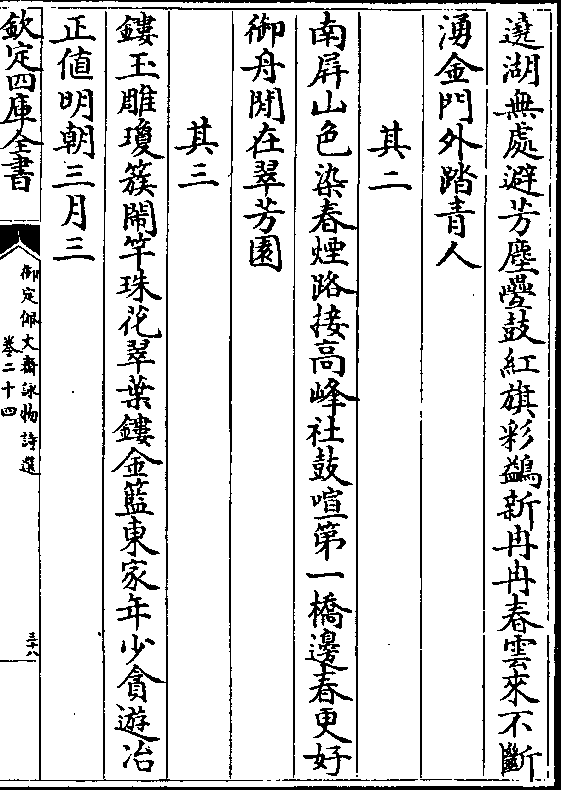 遶湖無處避芳塵疊鼓紅旗彩鷁新冉冉春雲來不斷
湧金門外踏青人
其二
南屏山色染春煙路接高峰社鼓喧第一橋邊春更好
御舟閒在翠芳園
其三
鏤玉雕瓊簇鬧竿珠花翠葉鏤金籃東家年少貪遊冶
正值明朝三月三
欽定四庫全書
御定佩文齋詠物詩選
卷二十四
三十八